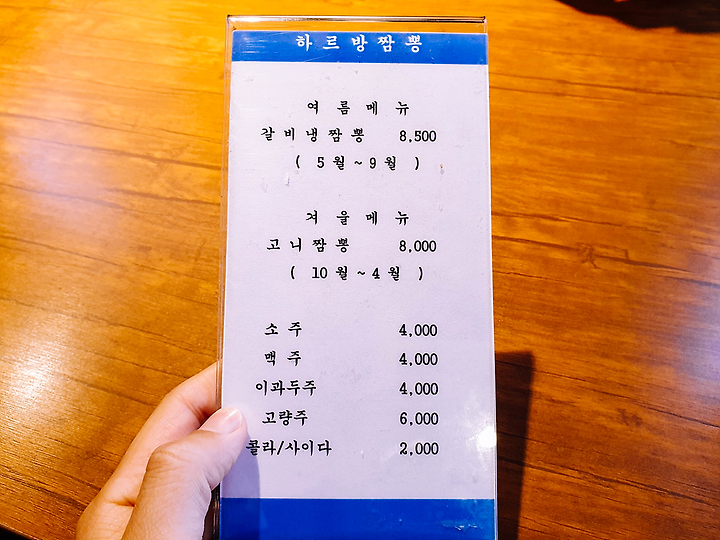 하르방짬뽕
여름메뉴
갈비냉짬뽕 8,500
( 5월~9월 )
겨울메뉴
고니짬뽕 8,000
( 10월~4월 )
소주 4,000
맥주 4,000
이과두주 4,000
고량주 6,000
콜라/사이다 2,000